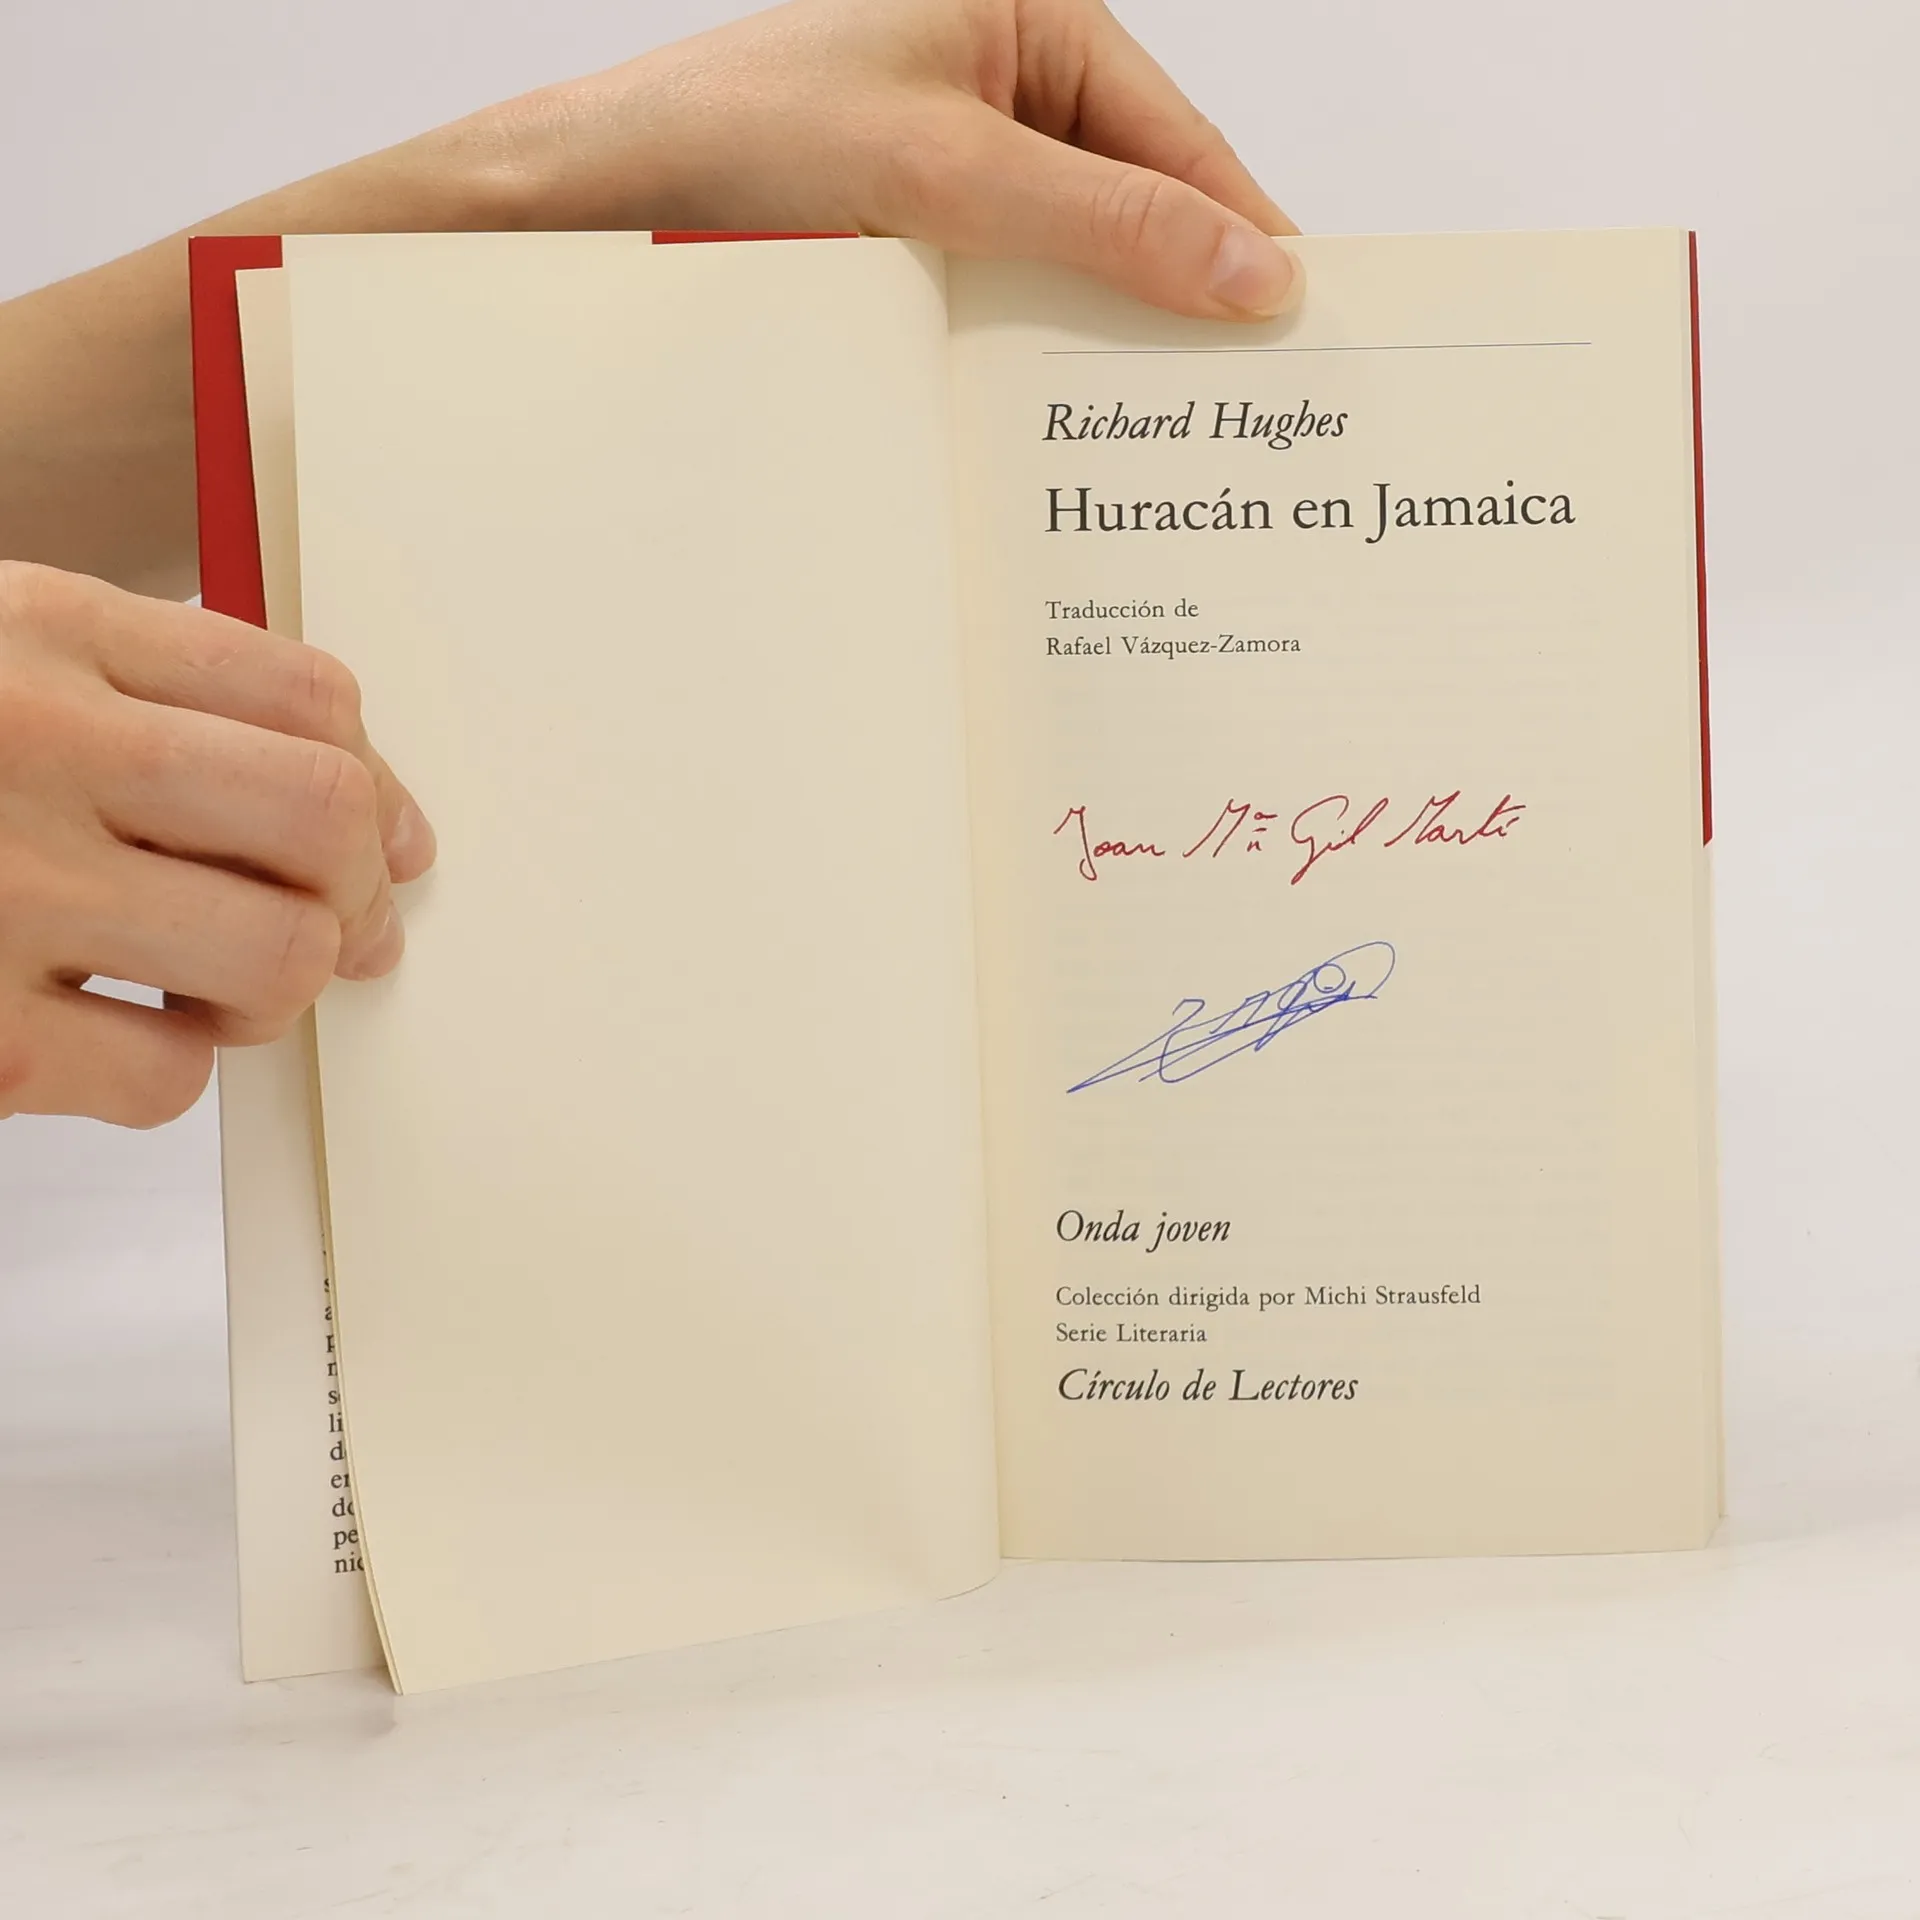 Richard Hughes
Huracán en Jamaica
Traducción de
Rafael Vázquez-Zamora
Joan Mª Gil Martí
Onda joven
Colección dirigida por Michi Strausfeld
Serie Literaria
Círculo de Lectores